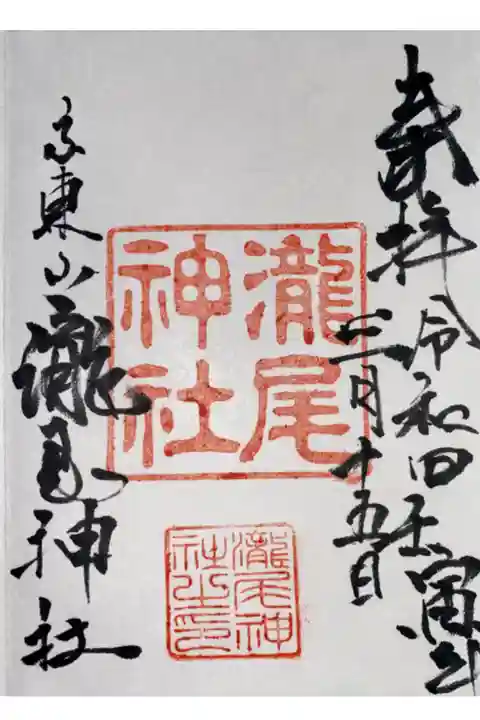 奉拝
令和四壬寅年
三月十五日
瀧尾
神社
瀧尾神
社之印
京東山瀧尾神社